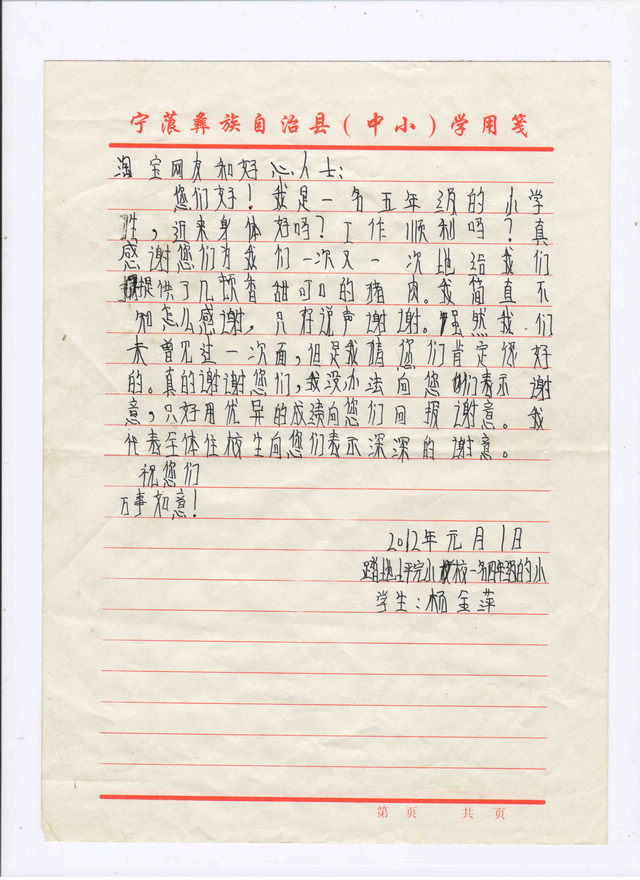 宁蒗彝族自治县(中小)学用笺
淘宝网友和好心人士:
您们好!我是一名五年级的小学
牲,近来身体好吗?工作顺利吗?真
感谢您们为我们一次又一次地给我们
提供了几顿香甜可口的猪肉。我简直不
知怎么感谢,只好说声谢谢。虽然我们
未曾见过一次面,但是我猜您们肯定很好
的。真的谢谢您们,我没办法向您们表示谢
意,只好用优异的成绩向您们回报谢意。我
代表全体住校生向您们表示深深的谢意。
祝您们
万事如意!
2012年元月1日
完小校一名四年级的小
学生:杨金萍
第 页 共 页